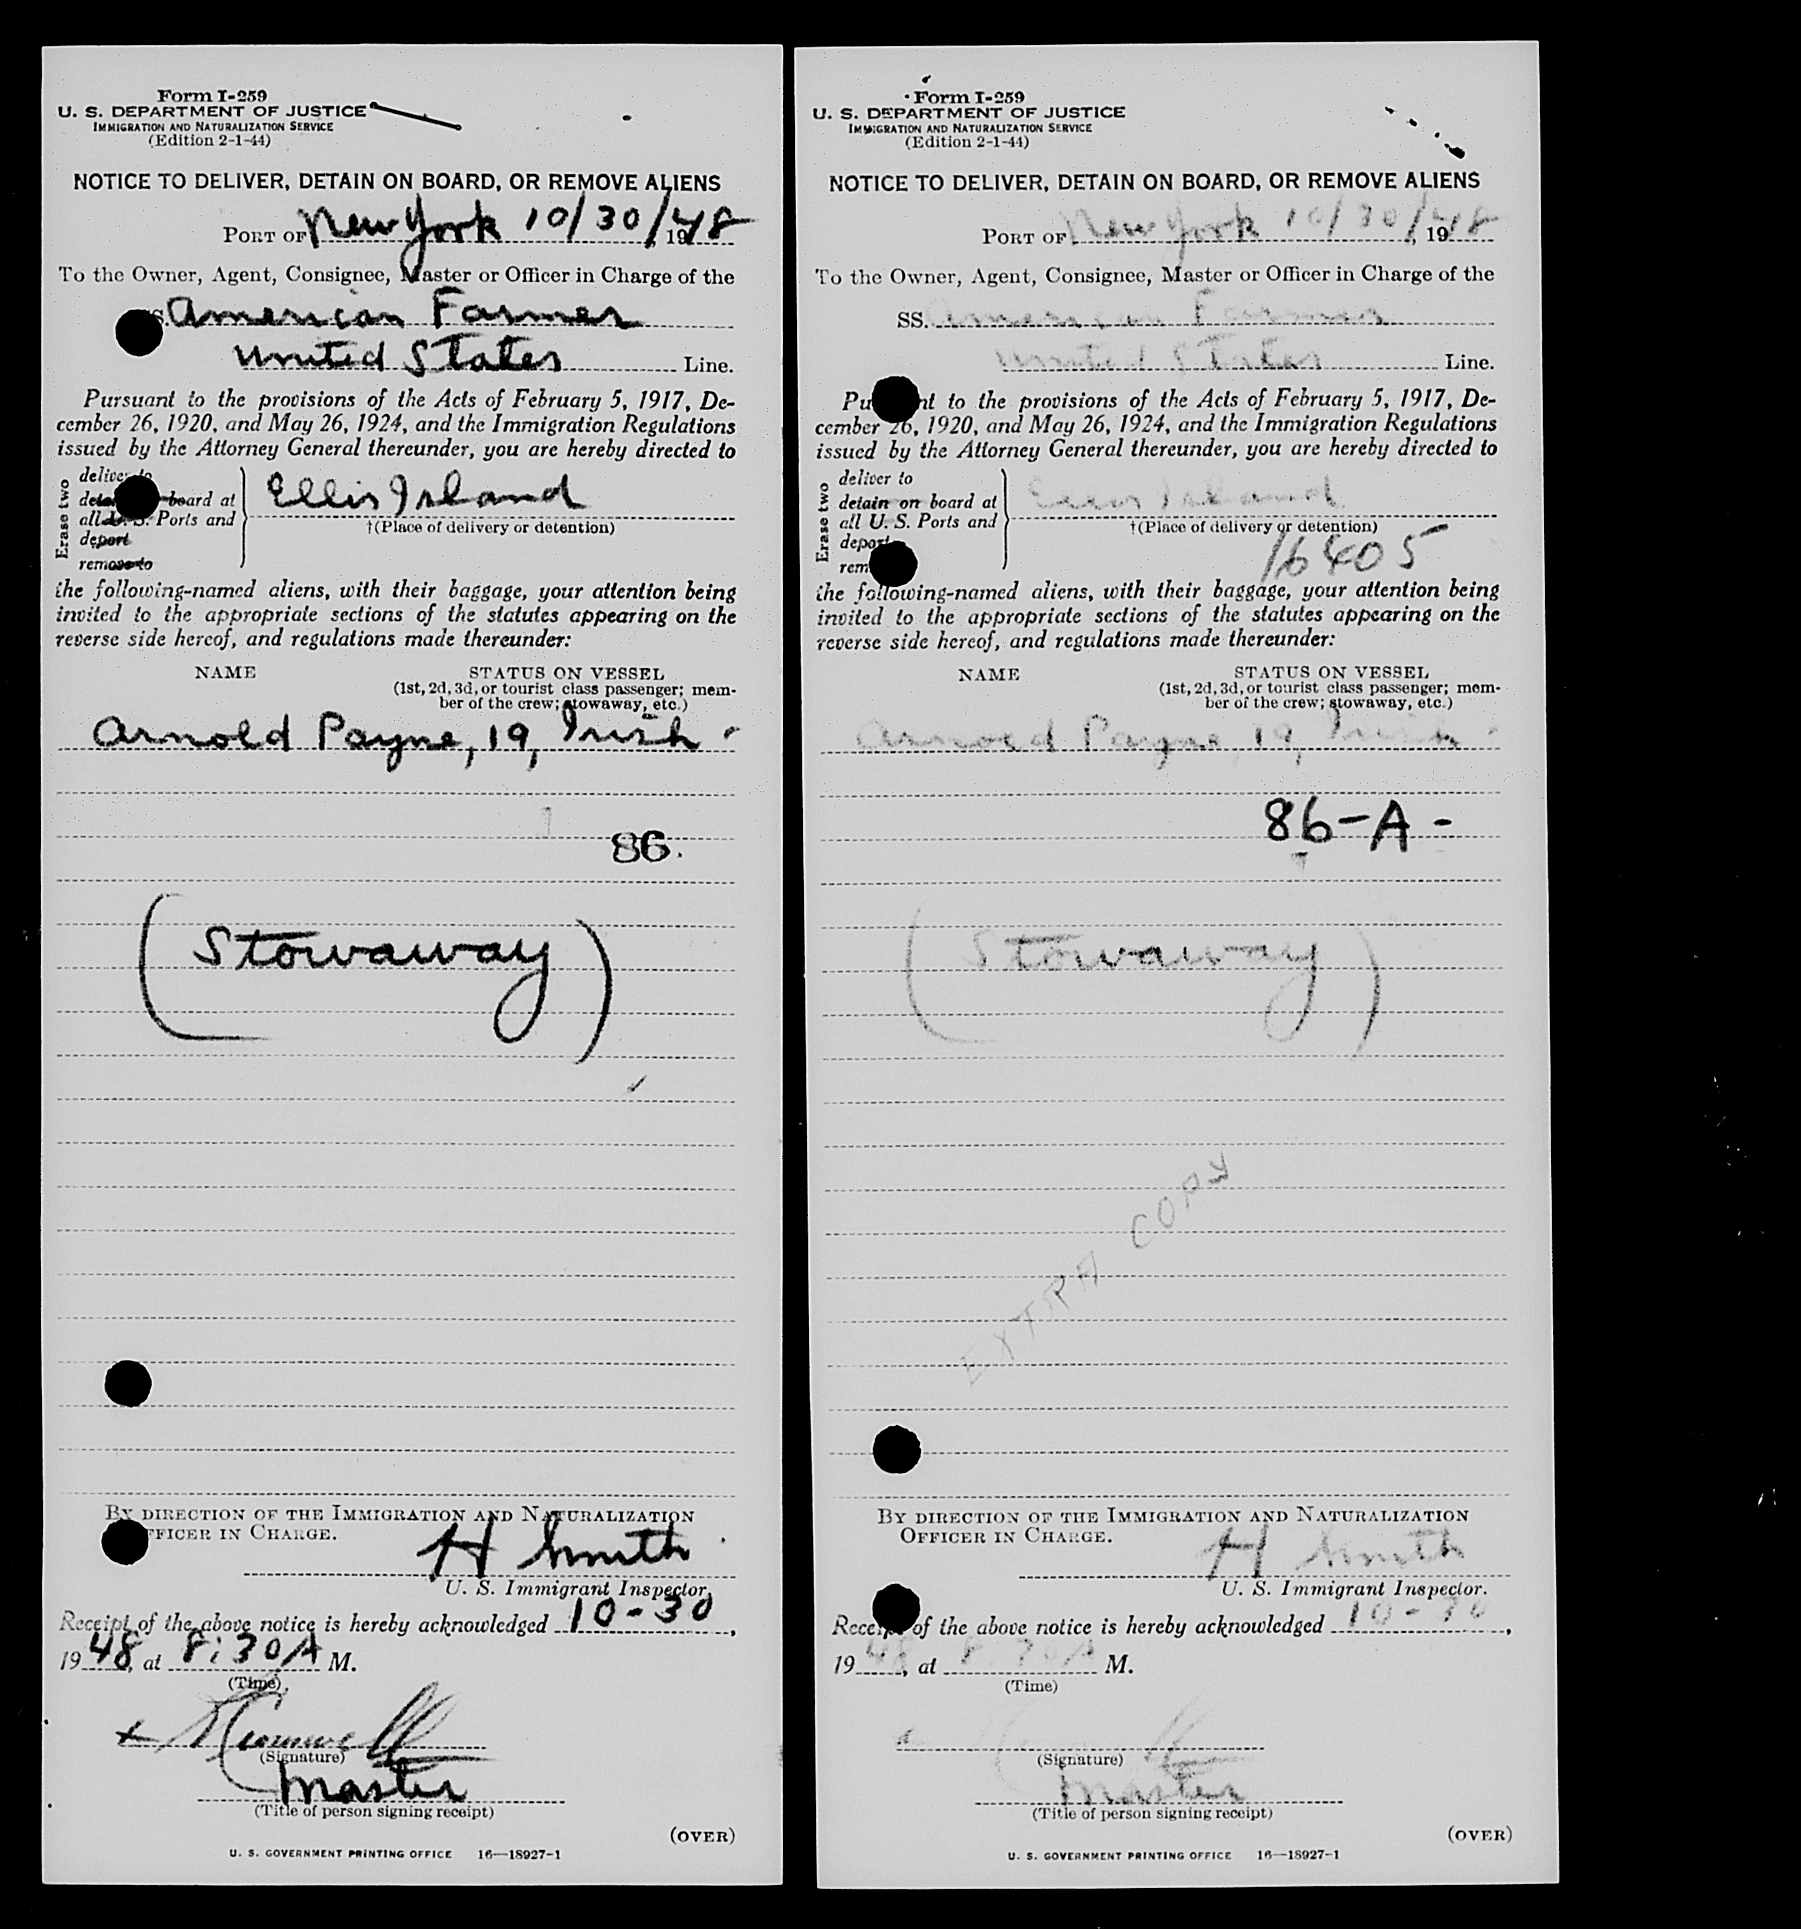 Form I-259
U. S. DEPARTMENT OF JUSTICE
IMMIGRATION AND NATURALIZATION SERVICE
(Edition 2-1-44)
NOTICE TO DELIVER, DETAIN ON BOARD, OR REMOVE ALIENS
PORT OF New York 10/30/48, 19
To the Owner, Agent, Consignee, Master or Officer in Charge of the
SS. American Farmer
United States Line.
Pursuant to the provisions of the Acts of February 5, 1917, De-
cember 26, 1920, and May 26, 1924, and the Immigration Regulations
issued by the Attorney General thereunder, you are hereby directed to
Erase two
deliver to
board at
all U. S. Ports and
deport
remove to
Ellis Island
†(Place of delivery or detention)
the following-named aliens, with their baggage, your attention being
invited to the appropriate sections of the statutes appearing on the
reverse side hereof, and regulations made thereunder:
NAME STATUS ON VESSEL
(1st, 2d, 3d, or tourist class passenger; mem-
ber of the crew; stowaway, etc.)
Arnold Payne, 19, Irish -
86.
(Stowaway)
BY DIRECTION OF THE IMMIGRATION AND NATURALIZATION
OFFICER IN CHARGE.
H Smith
U. S. Immigrant Inspector.
Receipt of the above notice is hereby acknowledged 10-30,
1948, at 8:30 A M.
(Time)
(Signature)
Master
(Title of person signing receipt)
(OVER)
U. S. GOVERNMENT PRINTING OFFICE 16—18927-1
Form I-259
U. S. DEPARTMENT OF JUSTICE
IMMIGRATION AND NATURALIZATION SERVICE
(Edition 2-1-44)
NOTICE TO DELIVER, DETAIN ON BOARD, OR REMOVE ALIENS
PORT OF New York 10/30/48, 19
To the Owner, Agent, Consignee, Master or Officer in Charge of the
SS. American Farmer
United States Line.
Pursuant to the provisions of the Acts of February 5, 1917, De-
cember 26, 1920, and May 26, 1924, and the Immigration Regulations
issued by the Attorney General thereunder, you are hereby directed to
Erase two
deliver to
detain on board at
all U. S. Ports and
deport
Ellis Island
†(Place of delivery or detention)
16405
the following-named aliens, with their baggage, your attention being
invited to the appropriate sections of the statutes appearing on the
reverse side hereof, and regulations made thereunder:
NAME STATUS ON VESSEL
(1st, 2d, 3d, or tourist class passenger; mem-
ber of the crew; stowaway, etc.)
Arnold Payne, 19, Irish -
86-A-
(Stowaway)
EXTRA COPY
BY DIRECTION OF THE IMMIGRATION AND NATURALIZATION
OFFICER IN CHARGE.
H Smith
U. S. Immigrant Inspector.
Receipt of the above notice is hereby acknowledged 10-30,
1948, at 8:30 A M.
(Time)
(Signature)
Master
(Title of person signing receipt)
(OVER)
U. S. GOVERNMENT PRINTING OFFICE 16—18927-1